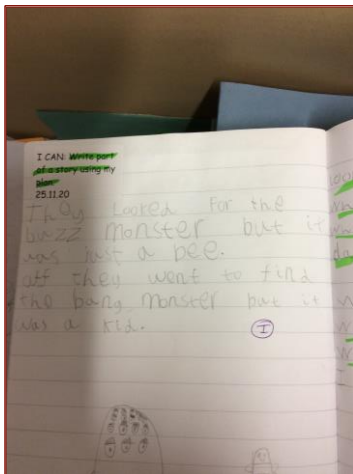 I CAN: Write part
of a story using my
plan.
25.11.20
They Looked For the
buzz monster but it
was just a bee.
off they went to find
the bang monster but it
was a kid.
I